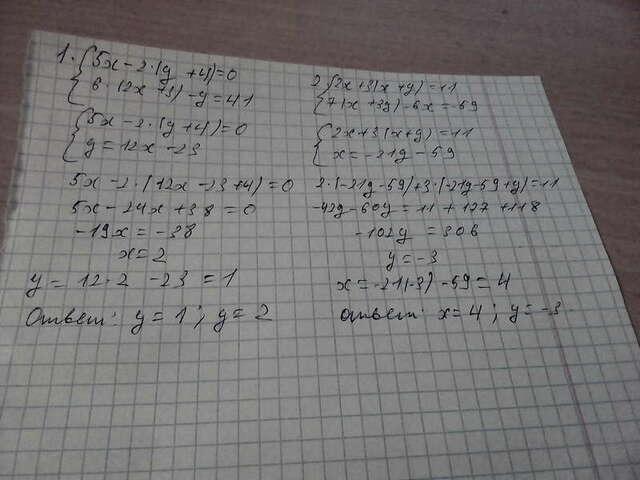 1. {5x - 2·(y + 4) = 0
6·(2x + 3) - y = 41
{5x - 2·(y + 4) = 0
y = 12x - 23
5x - 2·(12x - 23 + 4) = 0
5x - 24x + 38 = 0
-19x = -38
x = 2
y = 12·2 - 23 = 1
Ответ: y = 1; y = 2
2 {2x + 3(x + y) = 11
7(x + 3y) - 6x = -59
{2x + 3(x + y) = 11
x = -21y - 59
2·(-21y - 59) + 3·(-21y - 59 + y) = 11
-42y - 60y = 11 + 177 + 118
-102y = 306
y = -3
x = -21(-3) - 59 = 4
Ответ: x = 4; y = -3